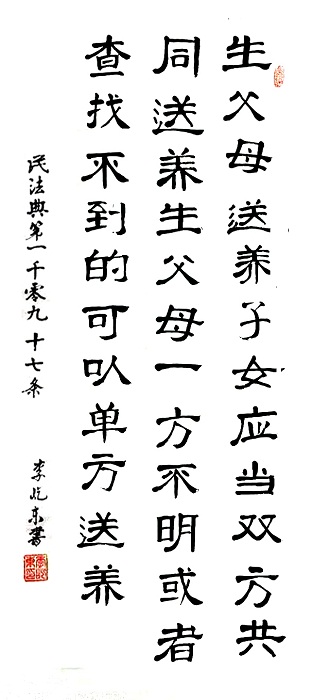 生父母送养子女应当双方共
同送养生父母一方不明或者
查找不到的可以单方送养
民法典第一千零九十七条
李屹东书